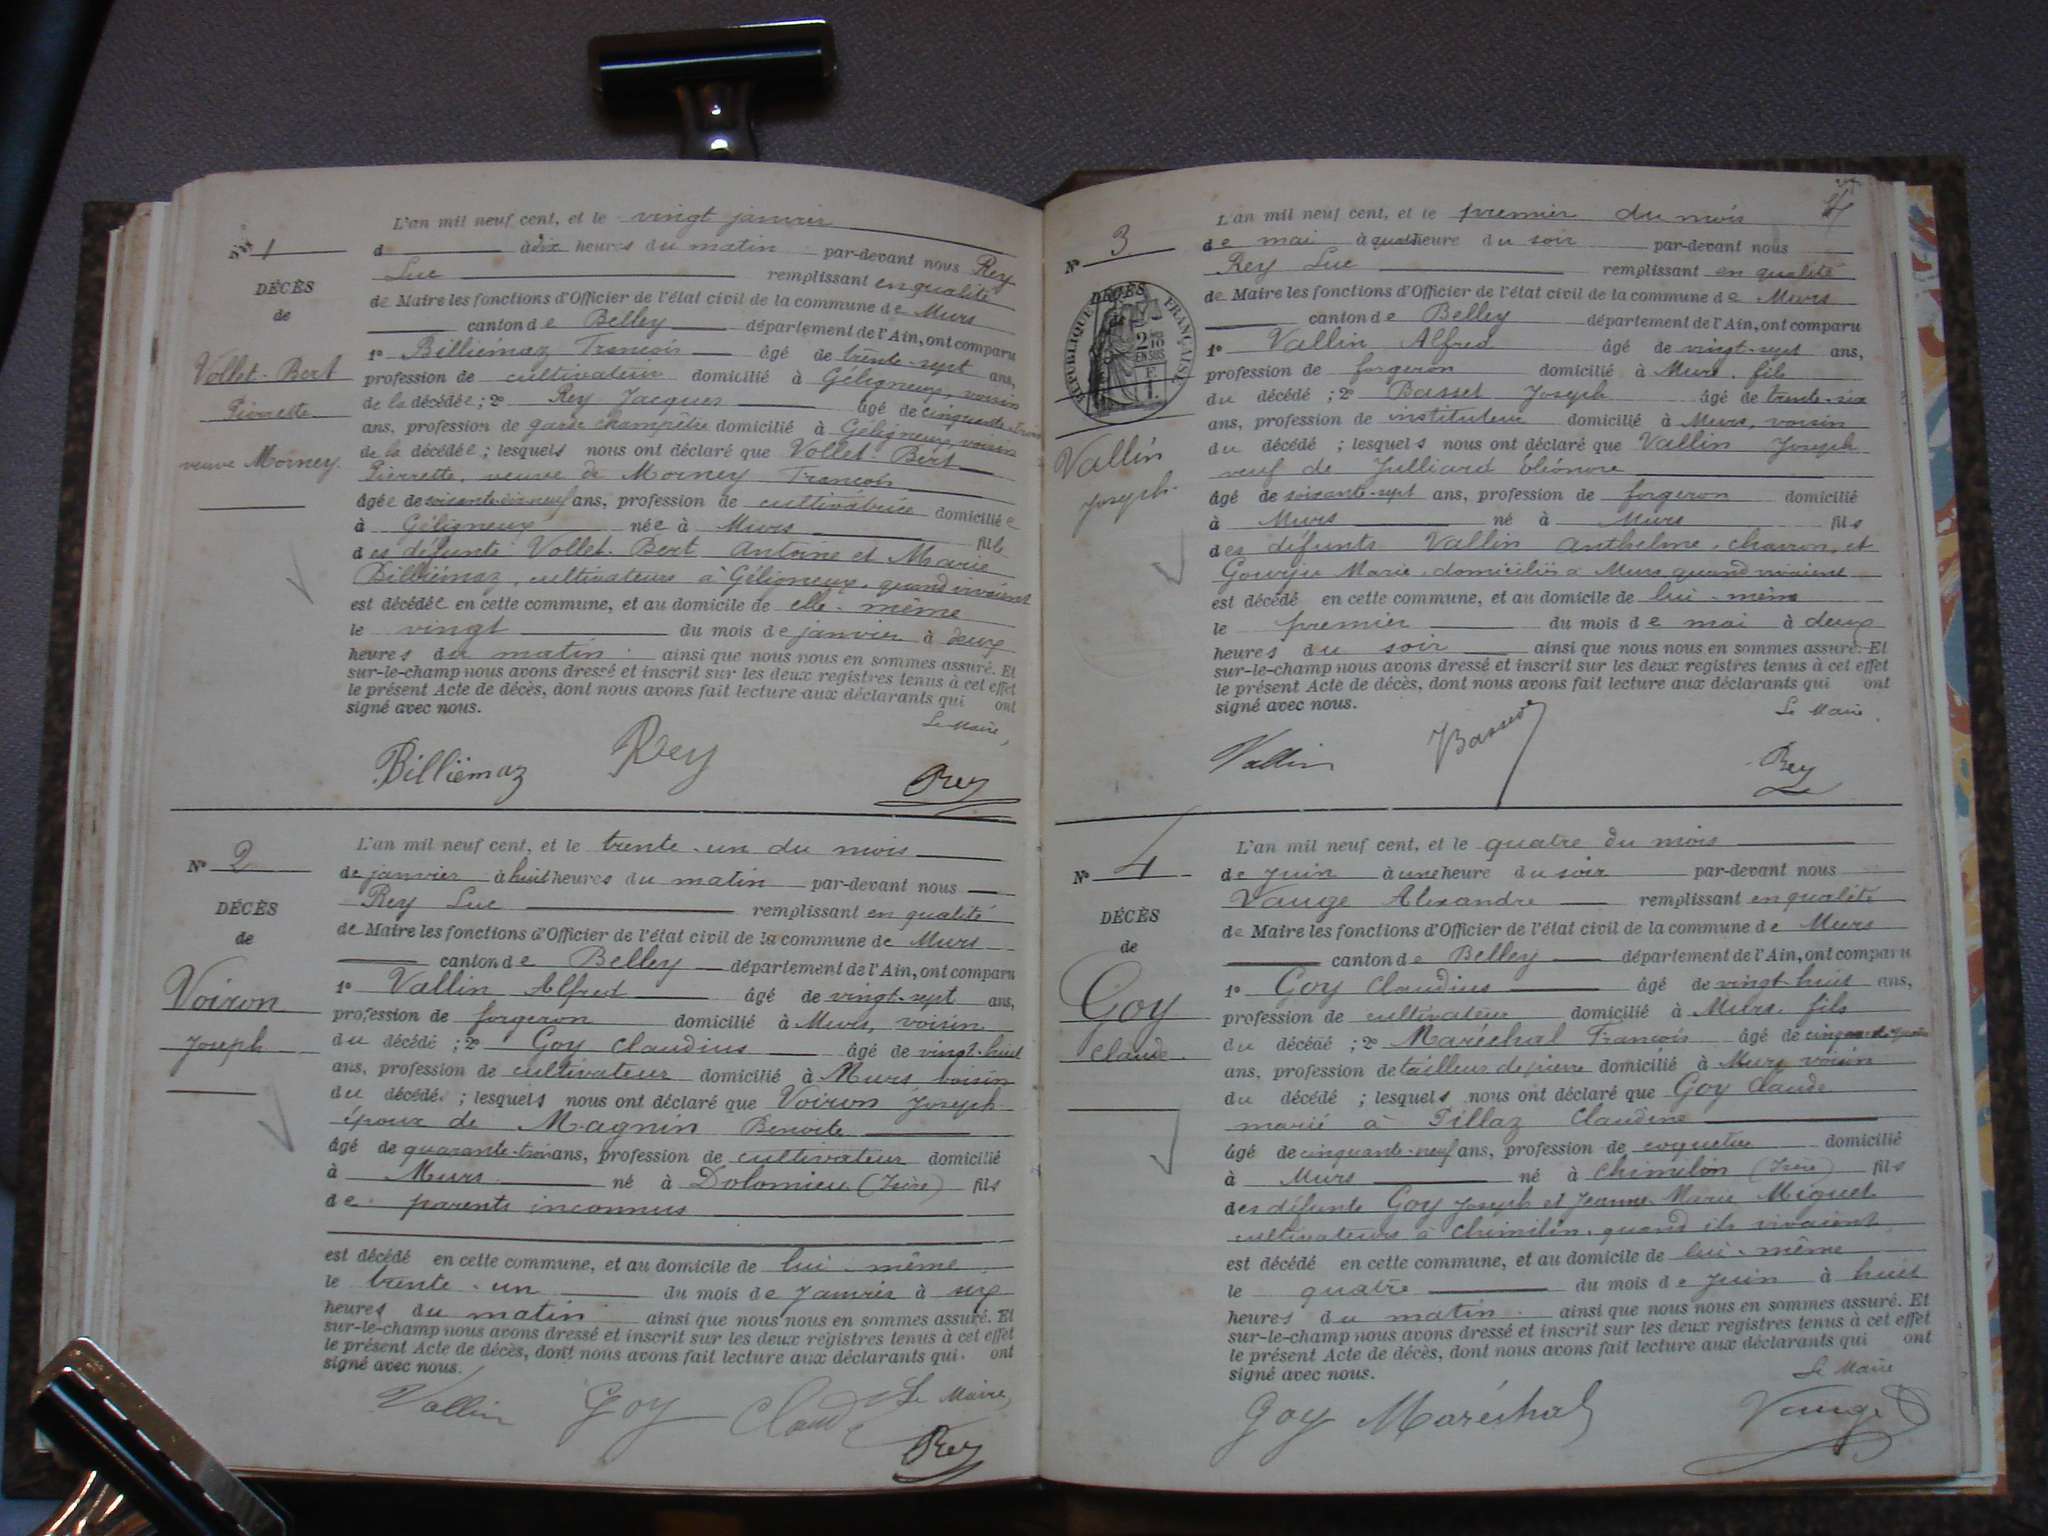 Nº 1
DÉCÈS
de
Vollet-Bert
Pierrette
veuve Morney
L'an mil neuf cent, et le vingt janvier
d à dix heures du matin par-devant nous Rey
Luc remplissant en qualité
de Maire les fonctions d'Officier de l'état civil de la commune de Murs
canton de Belley département de l'Ain, ont comparu
1º Billiémaz François âgé de trente-sept ans,
profession de cultivateur domicilié à Géligneux, voisin
de la décédée ; 2º Rey Jacques âgé de cinquante-trois
ans, profession de garde champêtre domicilié à Géligneux, voisin
de la décédée ; lesquels nous ont déclaré que Vollet-Bert
Pierrette, veuve de Morney François
âgée de soixante-dix neuf ans, profession de cultivatrice domiciliée
à Géligneux née à Murs fille
des défunts Vollet-Bert Antoine et Marie
Billiémaz, cultivateurs à Géligneux, quand vivaient
est décédée en cette commune, et au domicile de elle-même
le vingt du mois de janvier à deux
heures du matin ainsi que nous nous en sommes assuré. Et
sur-le-champ nous avons dressé et inscrit sur les deux registres tenus à cet effet
le présent Acte de décès, dont nous avons fait lecture aux déclarants qui ont
signé avec nous.
Le Maire,
Billiémaz Rey Rey
Nº 2
DÉCÈS
de
Voiron
Joseph
L'an mil neuf cent, et le trente-un du mois
de janvier à huit heures du matin par-devant nous
Rey Luc remplissant en qualité
de Maire les fonctions d'Officier de l'état civil de la commune de Murs
canton de Belley département de l'Ain, ont comparu
1º Vallin Alfred âgé de vingt-sept ans,
profession de forgeron domicilié à Murs, voisin
du décédé ; 2º Goy Claudius âgé de vingt-huit
ans, profession de cultivateur domicilié à Murs, voisin
du décédé ; lesquels nous ont déclaré que Voiron Joseph
époux de Magnin Benoite
âgé de quarante-trois ans, profession de cultivateur domicilié
à Murs né à Dolomieu (Isère) fils
de parents inconnus
est décédé en cette commune, et au domicile de lui-même
le trente-un du mois de Janvier à six
heures du matin ainsi que nous nous en sommes assuré. Et
sur-le-champ nous avons dressé et inscrit sur les deux registres tenus à cet effet
le présent Acte de décès, dont nous avons fait lecture aux déclarants qui ont
signé avec nous.
Vallin Goy Claude Le Maire,
Rey
Nº 3
DÉCÈS
de
RÉPUBLIQUE FRANÇAISE
2/10
EN SUS
Vallin
Joseph
L'an mil neuf cent, et le premier du mois
de mai à quatre heure du soir par-devant nous
Rey Luc remplissant en qualité
de Maire les fonctions d'Officier de l'état civil de la commune de Murs
canton de Belley département de l'Ain, ont comparu
1º Vallin Alfred âgé de vingt-sept ans,
profession de forgeron domicilié à Murs, fils
du décédé ; 2º Basset Joseph âgé de trente-six
ans, profession de instituteur domicilié à Murs, voisin
du décédé ; lesquels nous ont déclaré que Vallin Joseph
veuf de Julliard Éléonore
âgé de soixante-sept ans, profession de forgeron domicilié
à Murs né à Murs fils
des défunts Vallin Anthelme, charron, et
Marie domiciliés à Murs quand vivaient
est décédé en cette commune, et au domicile de lui-même
le premier du mois de mai à deux
heures du soir ainsi que nous nous en sommes assuré. Et
sur-le-champ nous avons dressé et inscrit sur les deux registres tenus à cet effet
le présent Acte de décès, dont nous avons fait lecture aux déclarants qui ont
signé avec nous.
Le Maire.
Vallin Basset Rey
Nº 4
DÉCÈS
de
Goy
Claude
L'an mil neuf cent, et le quatre du mois
de Juin à une heure du soir par-devant nous
Vauge Alexandre remplissant en qualité
de Maire les fonctions d'Officier de l'état civil de la commune de Murs
canton de Belley département de l'Ain, ont comparu
1º Goy Claudius âgé de vingt-huit ans,
profession de cultivateur domicilié à Murs, fils
du décédé ; 2º Maréchal François âgé de
ans, profession de tailleur de pierre domicilié à Murs, voisin
du décédé ; lesquels nous ont déclaré que Goy Claude
marié à Pillaz Claudine
âgé de cinquante-neuf ans, profession de coquetier domicilié
à Murs né à Chimilin (Isère) fils
des défunts Goy Joseph et Jeanne Marie Miguet
cultivateurs à Chimilin, quand ils vivaient
est décédé en cette commune, et au domicile de lui-même
le quatre du mois de Juin à huit
heures du matin ainsi que nous nous en sommes assuré. Et
sur-le-champ nous avons dressé et inscrit sur les deux registres tenus à cet effet
le présent Acte de décès, dont nous avons fait lecture aux déclarants qui ont
signé avec nous.
Le Maire
Goy Maréchal Vauge